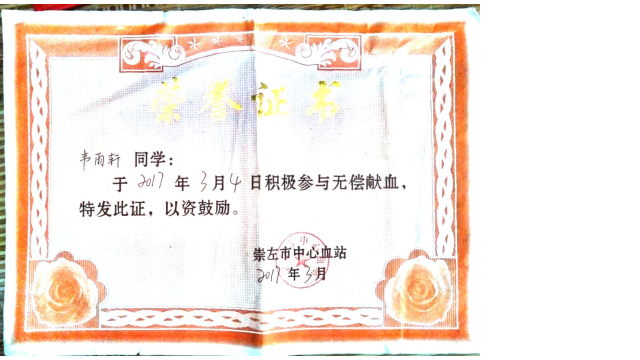 荣誉证书
韦雨轩 同学：
于 2017 年 3 月 4 日积极参与无偿献血，
特发此证，以资鼓励。
崇左市中心血站
2017 年 3 月